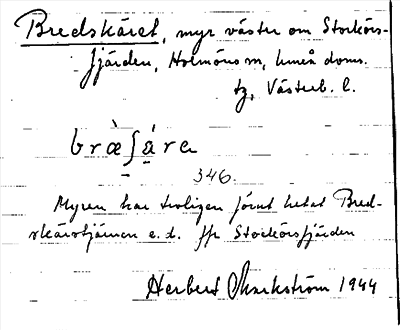 Bredskäret, myr väster om Storkörs-
fjärden, Holmöns sn, Umeå doms.
tg, Västerb. l.
bræ̀ʃárə
346.
Myren har troligen förut hetat Bred-
skärstjärnen e. d. ffr Storkörsfjärden
Herbert Markström 1944